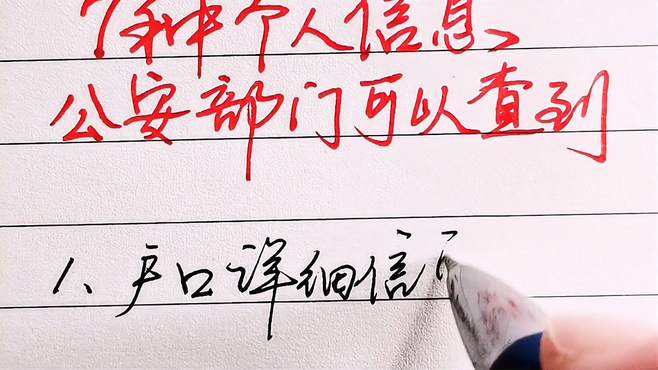 7种个人信息、
公安部门可以查到
1、户口详细信